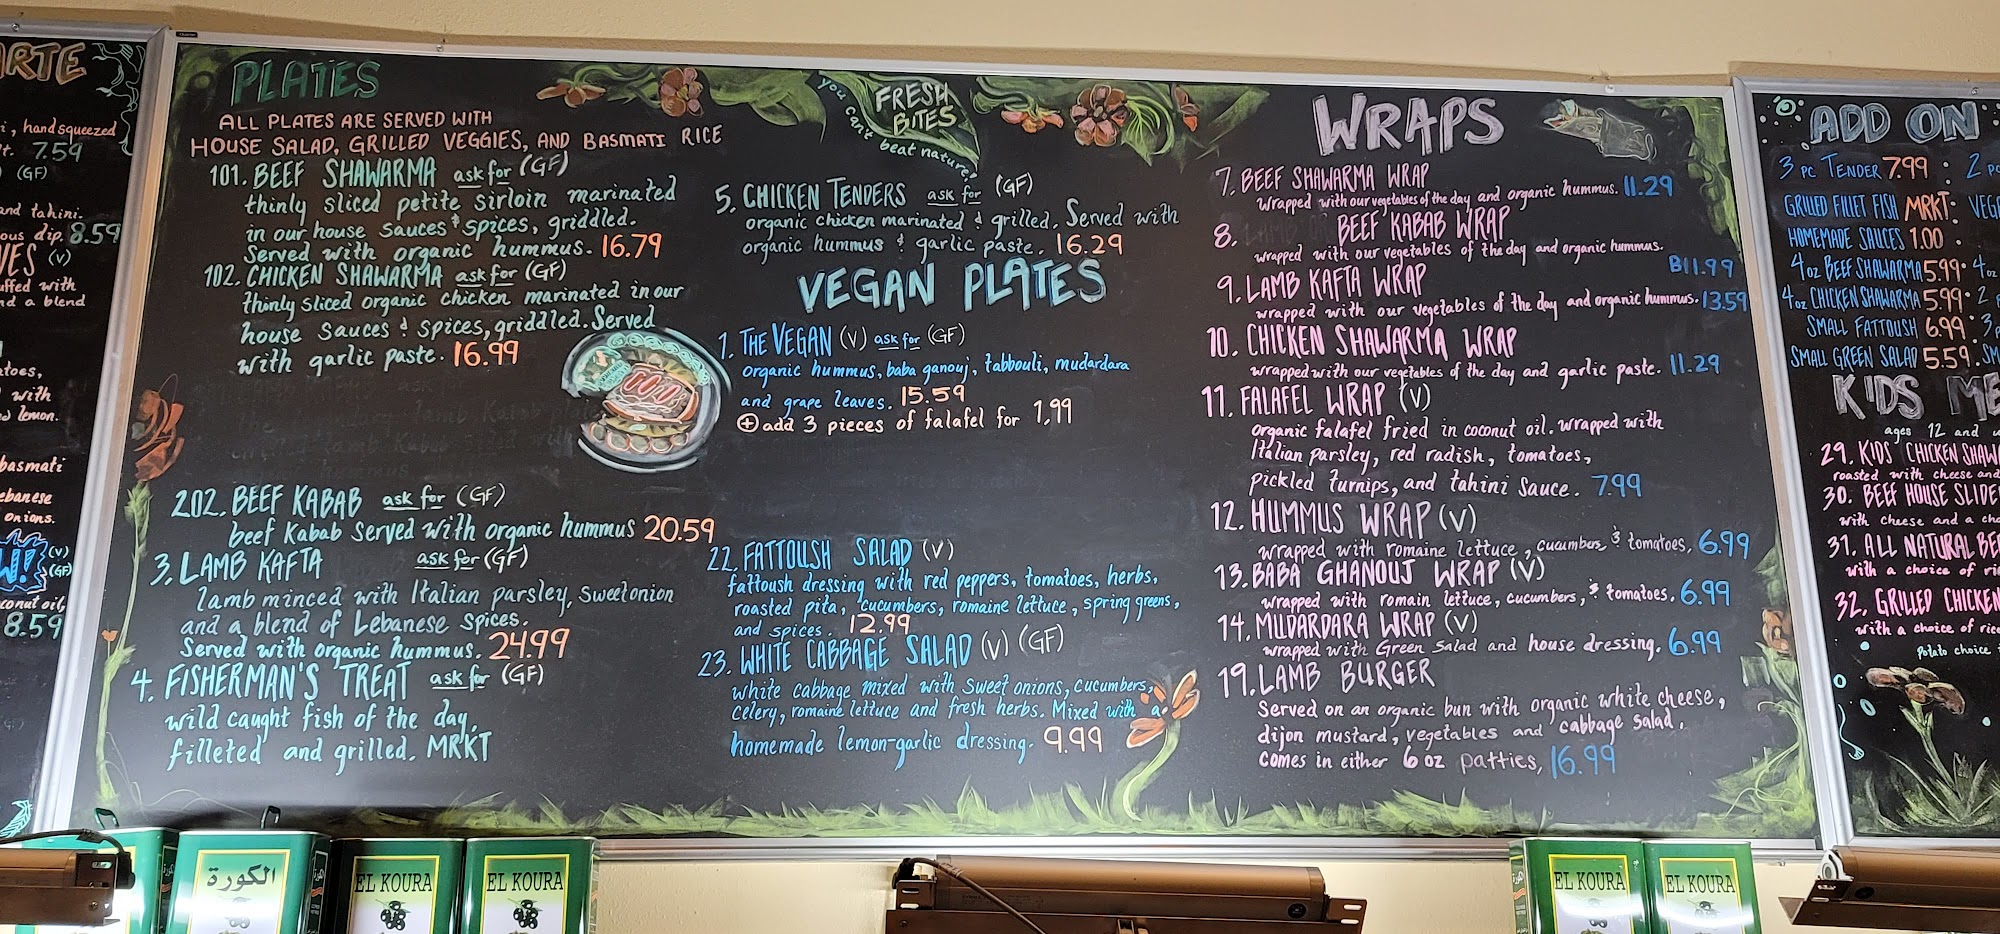 ARTE
i, handsqueezed
7.59
(GF)
and tahini.
ous dip. 8.59
VES (V)
uffed with
nd a blend
toes,
with
lemon.
basmati
ebanese
onions.
W! (V)
(GF)
conut oil,
8.59
PLATES
ALL PLATES ARE SERVED WITH
HOUSE SALAD, GRILLED VEGGIES, AND BASMATI RICE
101. BEEF SHAWARMA ask for (GF)
thinly sliced petite sirloin marinated
in our house sauces & spices, griddled.
Served with organic hummus. 16.79
102. CHICKEN SHAWARMA ask for (GF)
thinly sliced organic chicken marinated in our
house sauces & spices, griddled. Served
with garlic paste. 16.99
202. BEEF KABAB ask for (GF)
beef Kabab Served with organic hummus 20.59
3. LAMB KAFTA ask for (GF)
lamb minced with Italian parsley, sweet onion
and a blend of Lebanese spices.
Served with organic hummus. 24.99
4. FISHERMAN'S TREAT ask for (GF)
wild caught fish of the day,
filleted and grilled. MRKT
FRESH
BITES
you can't beat nature.
5. CHICKEN TENDERS ask for (GF)
organic chicken marinated & grilled. Served with
organic hummus & garlic paste. 16.29
VEGAN PLATES
1. THE VEGAN (V) ask for (GF)
organic hummus, baba ganouj, tabbouli, mudardara
and grape leaves. 15.59
+ add 3 pieces of falafel for 1,99
22. FATTOUSH SALAD (V)
fattoush dressing with red peppers, tomatoes, herbs,
roasted pita, cucumbers, romaine lettuce, spring greens,
and spices. 12.99
23. WHITE CABBAGE SALAD (V) (GF)
white cabbage mixed with sweet onions, cucumbers,
celery, romaine lettuce and fresh herbs. Mixed with a
homemade lemon-garlic dressing. 9.99
WRAPS
7. BEEF SHAWARMA WRAP
wrapped with our vegetables of the day and organic hummus. 11.29
8. BEEF KABAB WRAP
wrapped with our vegetables of the day and organic hummus.
B11.99
9. LAMB KAFTA WRAP
wrapped with our vegetables of the day and organic hummus. 13.59
10. CHICKEN SHAWARMA WRAP
wrapped with our vegetables of the day and garlic paste. 11.29
11. FALAFEL WRAP (V)
organic falafel fried in coconut oil. wrapped with
Italian parsley, red radish, tomatoes,
pickled turnips, and tahini sauce. 7.99
12. HUMMUS WRAP (V)
wrapped with romaine lettuce, cucumbers & tomatoes, 6.99
13. BABA GHANOUJ WRAP (V)
wrapped with romain lettuce, cucumbers, & tomatoes. 6.99
14. MUDARDARA WRAP (V)
wrapped with Green Salad and house dressing. 6.99
19. LAMB BURGER
Served on an organic bun with organic white cheese,
dijon mustard, vegetables and cabbage salad.
comes in either 6 oz patties, 16.99
ADD ON
3 PC TENDER 7.99 : 2 PC
GRILLED FILLET FISH MRKT
HOMEMADE SAUCES 1.00
4 oz BEEF SHAWARMA 5.99 4 oz
4 oz CHICKEN SHAWARMA 5.99 2
SMALL FATTOUSH 6.99 3
SMALL GREEN SALAD 5.59
KIDS ME
ages 12 and
29. KIDS CHICKEN SHAW
roasted with cheese and
30. BEEF HOUSE SLIDE
with cheese and a cho
31. ALL NATURAL BE
with a choice of ri
32. GRILLED CHICKEN
with a choice of rice
potato choice
الكورة
EL KOURA
EL KOURA
EL KOURA
EL KOURA